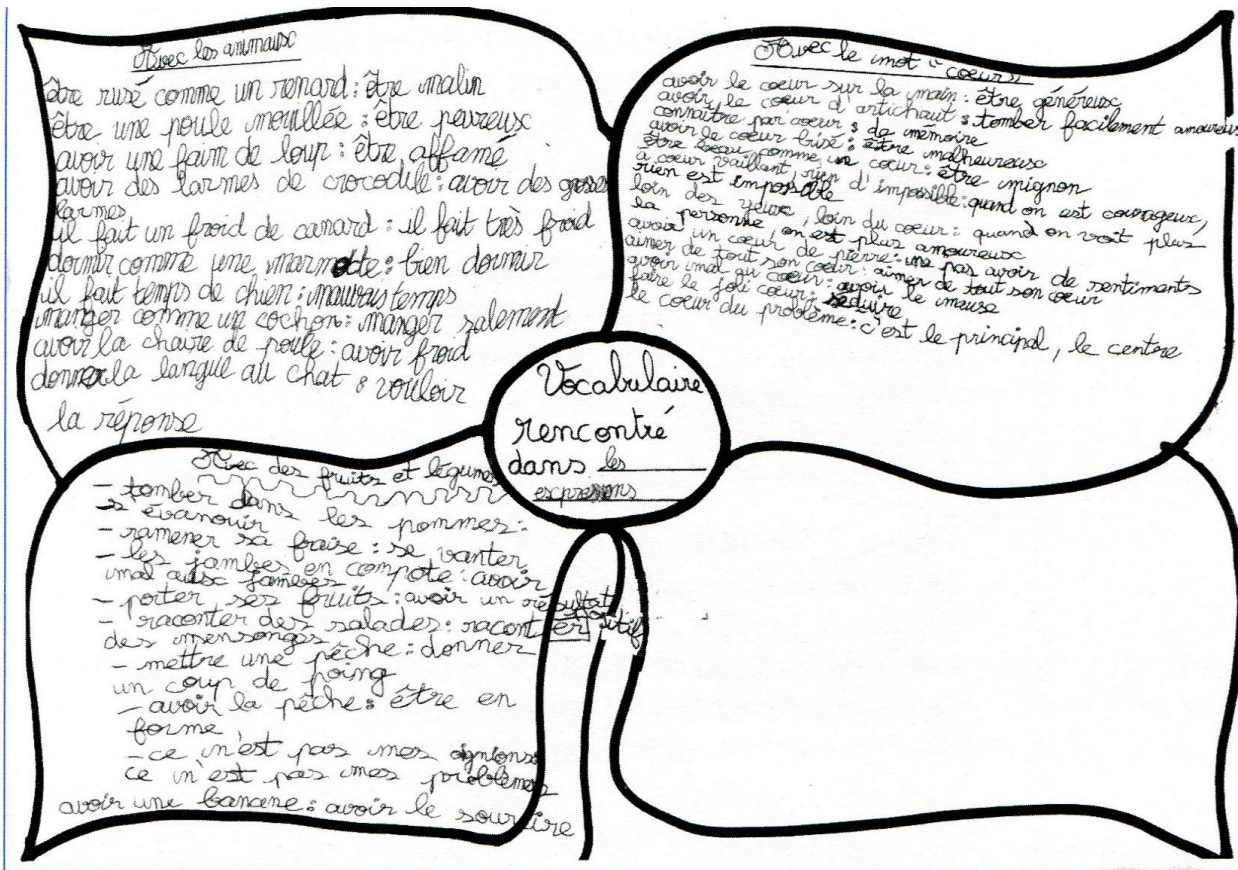 Avec les animaux
être rusé comme un renard : être malin
être une poule mouillée : être peureux
avoir une faim de loup : être affamé
avoir des larmes de crocodile : avoir des grosses
larmes
il fait un froid de canard : il fait très froid
dormir comme une marmotte : bien dormir
il fait temps de chien : mauvais temps
manger comme un cochon : manger salement
avoir la chaire de poule : avoir froid
donner la langue au chat : vouloir
la réponse
Avec le mot "coeurs"
avoir le coeur sur la main : être généreux
avoir le coeur d'artichaut : tomber facilement amoureux
connaître par coeur : de mémoire
avoir le coeur brisé : être malheureux
être beau comme un coeur : être mignon
à coeur vaillant, rien d'impossible : quand on est courageux,
rien est impossible
loin des yeux, loin du coeur : quand on voit plus
la personne, on est plus amoureux
avoir un coeur de pierre : ne pas avoir de sentiments
aimer de tout son coeur : aimer de tout son coeur
avoir mal au coeur : avoir le
faire le joli coeur : séduire
le coeur du problème : c'est le principal, le centre
Vocabulaire
rencontré
dans les
expressions
Avec des fruits et légumes
- tomber dans les pommes :
s'évanouir
- ramener sa fraise : se vanter
- les jambes en compote : avoir
mal aux jambes
- porter ses fruits : avoir un résultat
positif
- raconter des salades : raconter
des mensonges
- mettre une pêche : donner
un coup de poing
- avoir la pêche : être en
forme
- ce n'est pas mes ognions
ce n'est pas mes problèmes
avoir une banane : avoir le sourire